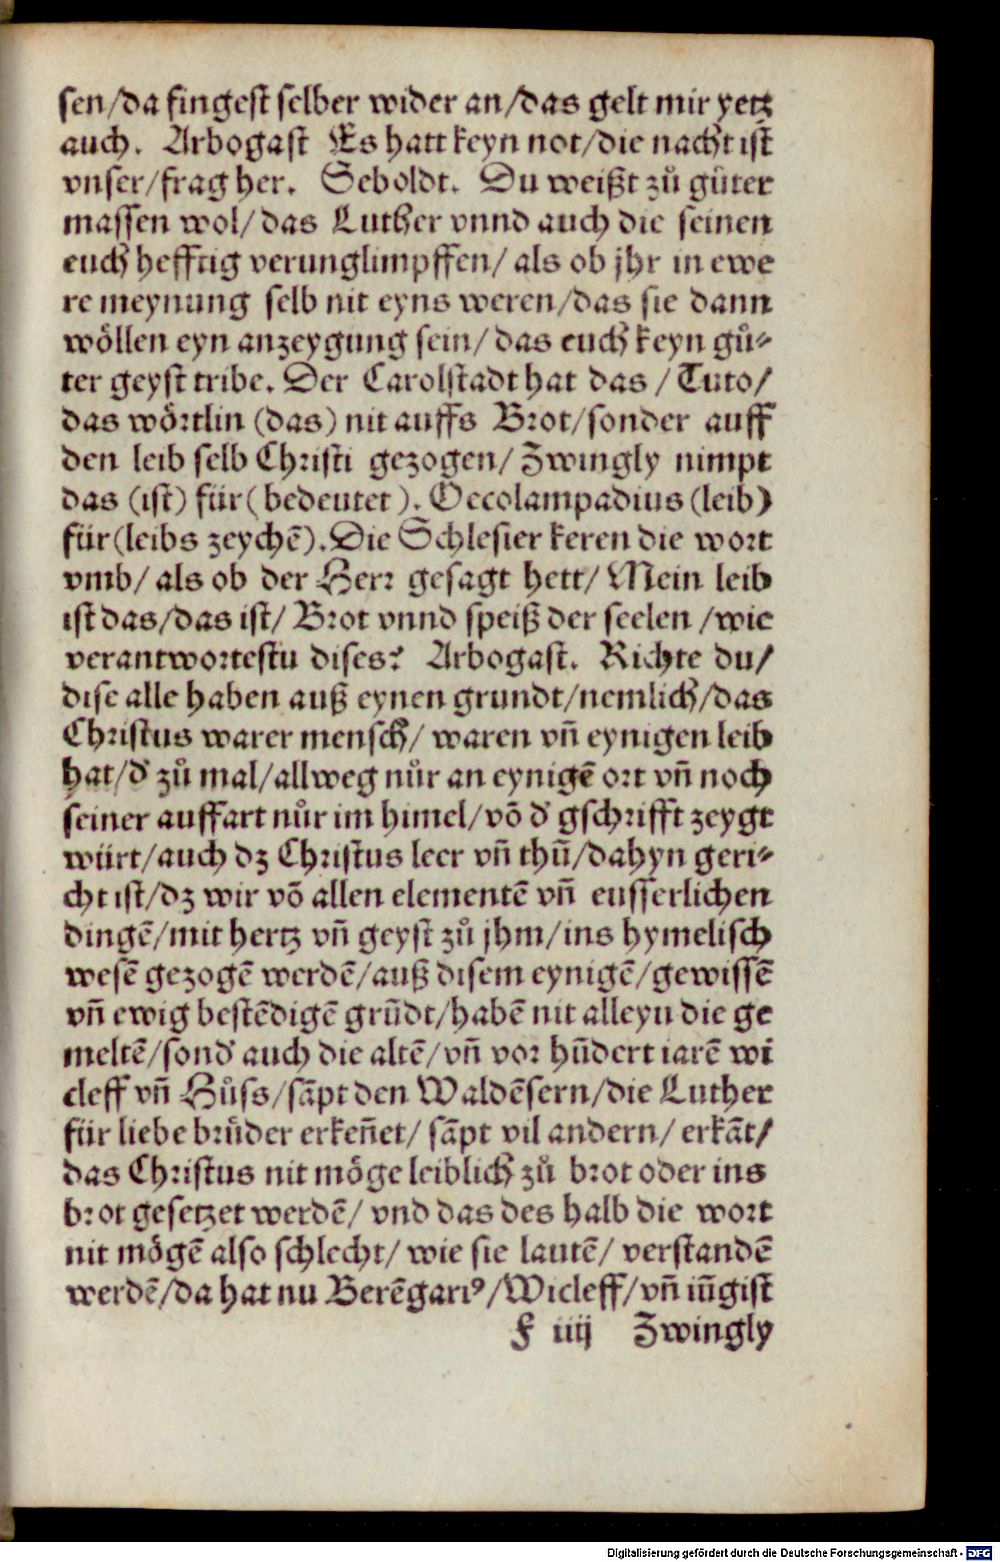 sen/da fingest selber wider an/das gelt mir yetz
auch. Arbogast Es hatt keyn not/die nacht ist
vnser/frag her. Seboldt. Du weißt zů gůter
massen wol/das Luther vnnd auch die seinen
euch hefftig verunglimpffen/als ob jhr in ewe
re meynung selb nit eyns weren/das sie dann
wöllen eyn anzeygung sein/das euch keyn gů⸗
ter geyst tribe. Der Carolstadt hat das/Tuto/
das wörtlin (das) nit auffs Brot/sonder auff
den leib selb Christi gezogen/Zwingly nimpt
das (ist) für (bedeutet). Oecolampadius (leib)
für (leibs zeychē). Die Schlesier keren die wort
vmb/als ob der Herr gesagt hett/Mein leib
ist das/das ist/Brot vnnd speiß der seelen/wie
verantwortestu dises? Arbogast. Richte du/
dise alle haben auß eynen grundt/nemlich/das
Christus warer mensch/waren vñ eynigen leib
hat/d' zů mal/allweg nůr an eynigē ort vñ noch
seiner auffart nůr im himel/võ d' gschrifft zeygt
würt/auch dz Christus leer vñ thů/dahyn geri⸗
cht ist/dz wir võ allen elementē vñ eusserlichen
dingē/mit hertz vñ geyst zů jhm/ins hymelisch
wesē gezogē werdē/auß disem eynigē/gewissē
vñ ewig bestēdigē grũdt/habē nit alleyn die ge
meltē/sond' auch die altē/vñ vor hũdert iarē wi
cleff vñ Hůss/sãpt den Waldēsern/die Luther
für liebe brůder erkeñet/sãpt vil andern/erkãt/
das Christus nit möge leiblich zů brot oder ins
brot gesetzet werdē/vnd das des halb die wort
nit mögē also schlecht/wie sie lautē/verstandē
werdē/da hat nu Berēgariꝰ/Wicleff/vñ iũgist
F iiij Zwingly
Digitalisierung gefördert durch die Deutsche Forschungsgemeinschaft - DFG